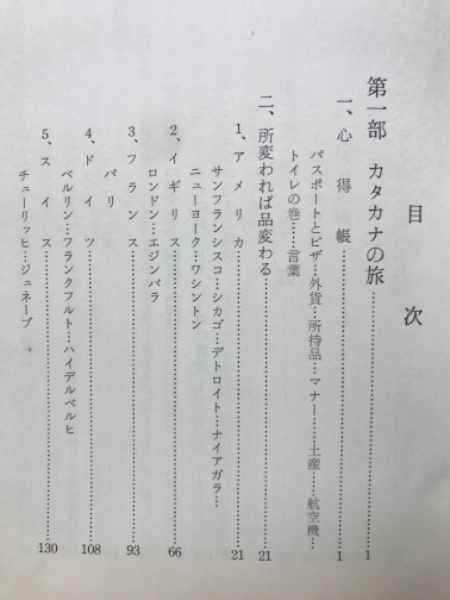 目次
第一部 カタカナの旅……………1
一、心得帳……………1
パスポートとビザ…外貨…所持品…マナー……土産……航空機…
トイレの巻……言葉
二、所変われば品変わる……………21
1、アメリカ……………21
サンフランシスコ…シカゴ…デトロイト…ナイアガラ…
ニューヨーク…ワシントン
2、イギリス……………66
ロンドン…エジンバラ
3、フランス……………93
パリ
4、ドイツ……………108
ベルリン…フランクフルト…ハイデルベルヒ
5、スイス……………130
チューリッヒ…ジュネーブ